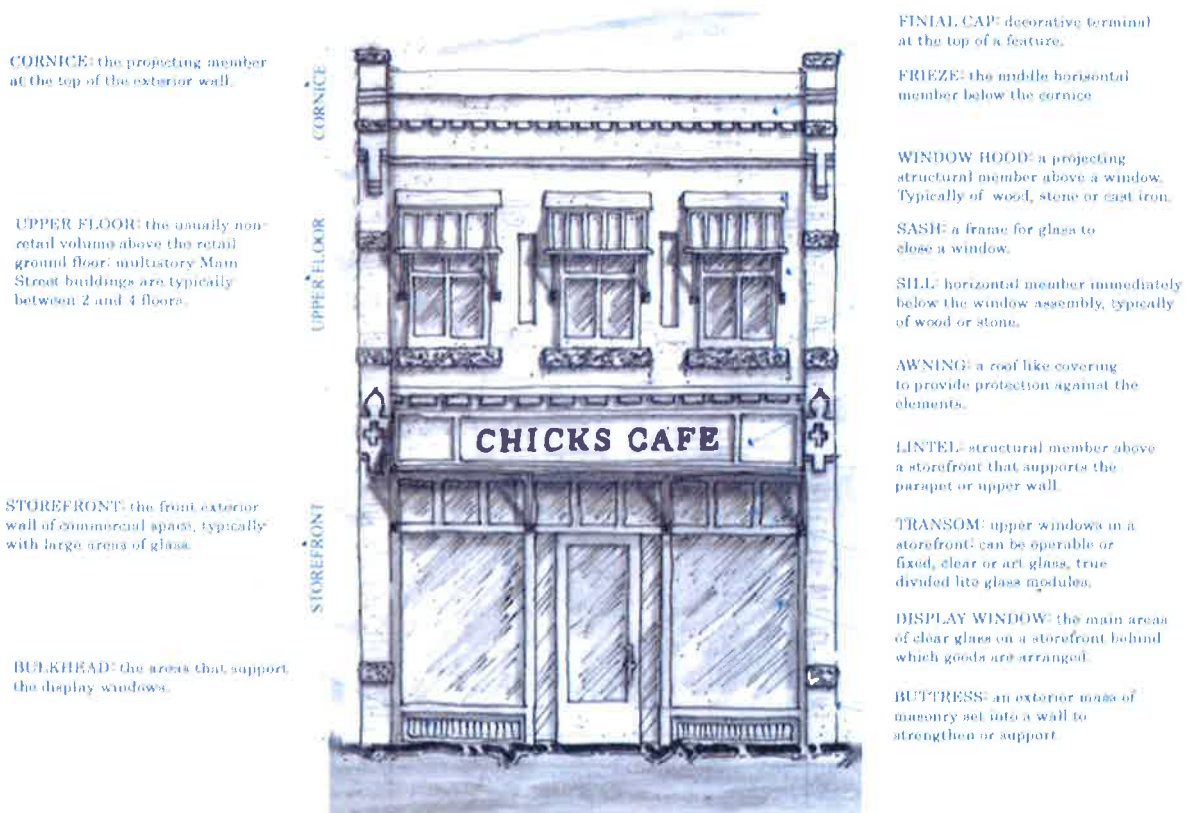 CORNICE: the projecting member
at the top of the exterior wall.
UPPER FLOOR: the usually non-
retail volume above the retail
ground floor; multistory Main
Street buildings are typically
between 2 and 4 floors.
STOREFRONT: the front exterior
wall of commercial space, typically
with large areas of glass.
BULKHEAD: the areas that support
the display windows.
CORNICE
UPPER FLOOR
STOREFRONT
CHICKS CAFE
FINIAL CAP: decorative terminal
at the top of a feature.
FRIEZE: the middle horisontal
member below the cornice
WINDOW HOOD: a projecting
structural member above a window.
Typically of wood, stone or cast iron.
SASH: a frame for glass to
close a window.
SILL: horizontal member immediately
below the window assembly, typically
of wood or stone.
AWNING: a roof like covering
to provide protection against the
elements.
LINTEL: structural member above
a storefront that supports the
parapet or upper wall.
TRANSOM: upper windows in a
storefront; can be operable or
fixed, clear or art glass, true
divided lite glass modules.
DISPLAY WINDOW: the main areas
of clear glass on a storefront behind
which goods are arranged.
BUTTRESS: an exterior mass of
masonry set into a wall to
strengthen or support.